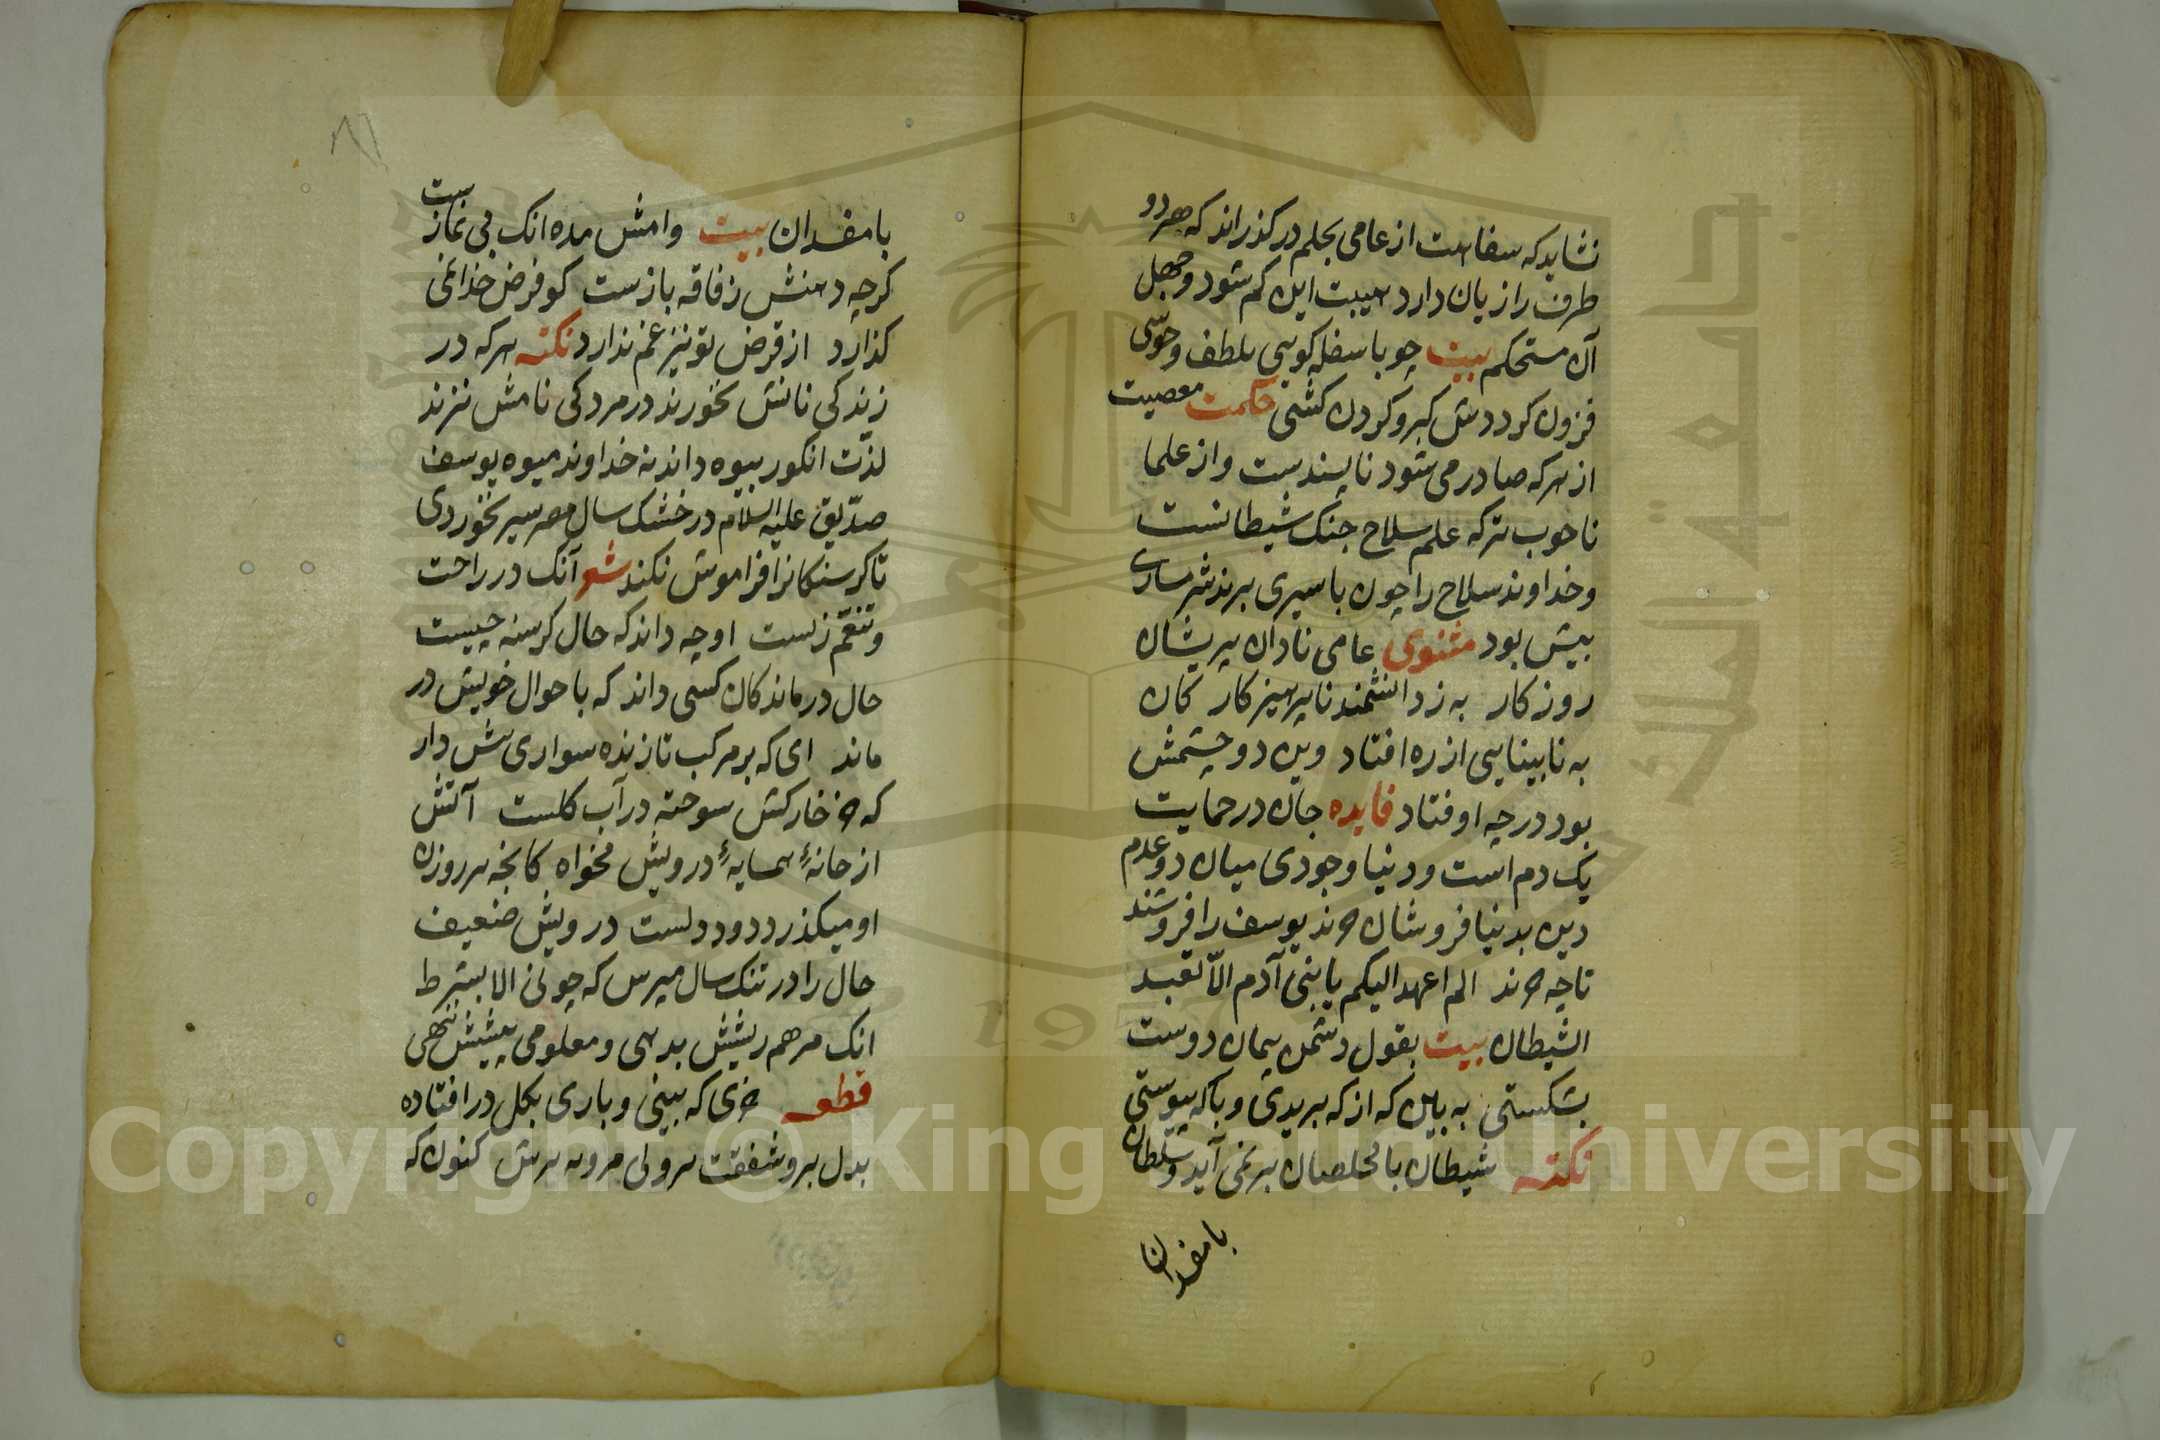 نشاید که سفاهت از عامی بحلم درگذراند که هر دو
طرف را زیان دارد هیبت این کم شود و جهل
آن مستحکم بیت چو با سفله کویی بلطف و خوشی
فزون کرددش کبر و کردن کشی حکمت معصیت
از هرکه صادر می شود ناپسندست و از علما
ناخوب ترکه علم سلاح جنک شیطانست
و خداوند سلاح را چون باسیری برند شرمساری
بیش بود مثنوی عامی نادان پریشان
روزکار به ز دانشمند ناپرهیزکار کان
به نابینایی از ره افتاد وین دو چشمش
بود در چه اوفتاد فایده جان در حمایت
یک دم است و دنیا وجودی میان دو عدم
دین بدنیا فروشان خرند یوسف را فروشند
تا چه خرند الم اعهد الیکم یا بنی آدم الّا تعبد
الشیطان بیت بقول دشمن پیمان دوست
بشکستی به بین که از که بریدی و با که پیوستی
نکته شیطان با مخلصان بر نمی آید و سلطان
بامفسدان
بامفسدان بیت وامش مده انک بی نمازست
کرچه دهنش ز فاقه بازست کو فرض خدا نمی
کذارد از قرض تو نیز غم ندارد نکته هرکه در
زندکی نانش نخورند در مردکی نامش نبرند
لذّت انکور بیوه داند نه خداوند میوه یوسف
صدّیق علیه السلام در خشک سال مصر سیر نخوردی
تا کرسنکانرا فراموش نکند شعر آنک در راحت
و تنعّم زیست او چه داند که حال کرسنه چیست
حال درماندکان کسی داند که باحوال خویش در
ماند ای که بر مرکب تازنده سواری هش دار
که خر خارکش سوخته در آب کلست آتش
از خانهٔ همسایهٔ درویش مخواه کانچه بر روزن
او میکذرد دود دلست درویش ضعیف
حال را در تنک سال مپرس که چونی الا بشرط
انک مرهم ریشش بدهی و معلومی پیشش نهی
قطعه خری که بینی و باری بکل در افتاده
بدل برو شفقت برولی مرو به سرش کنون که